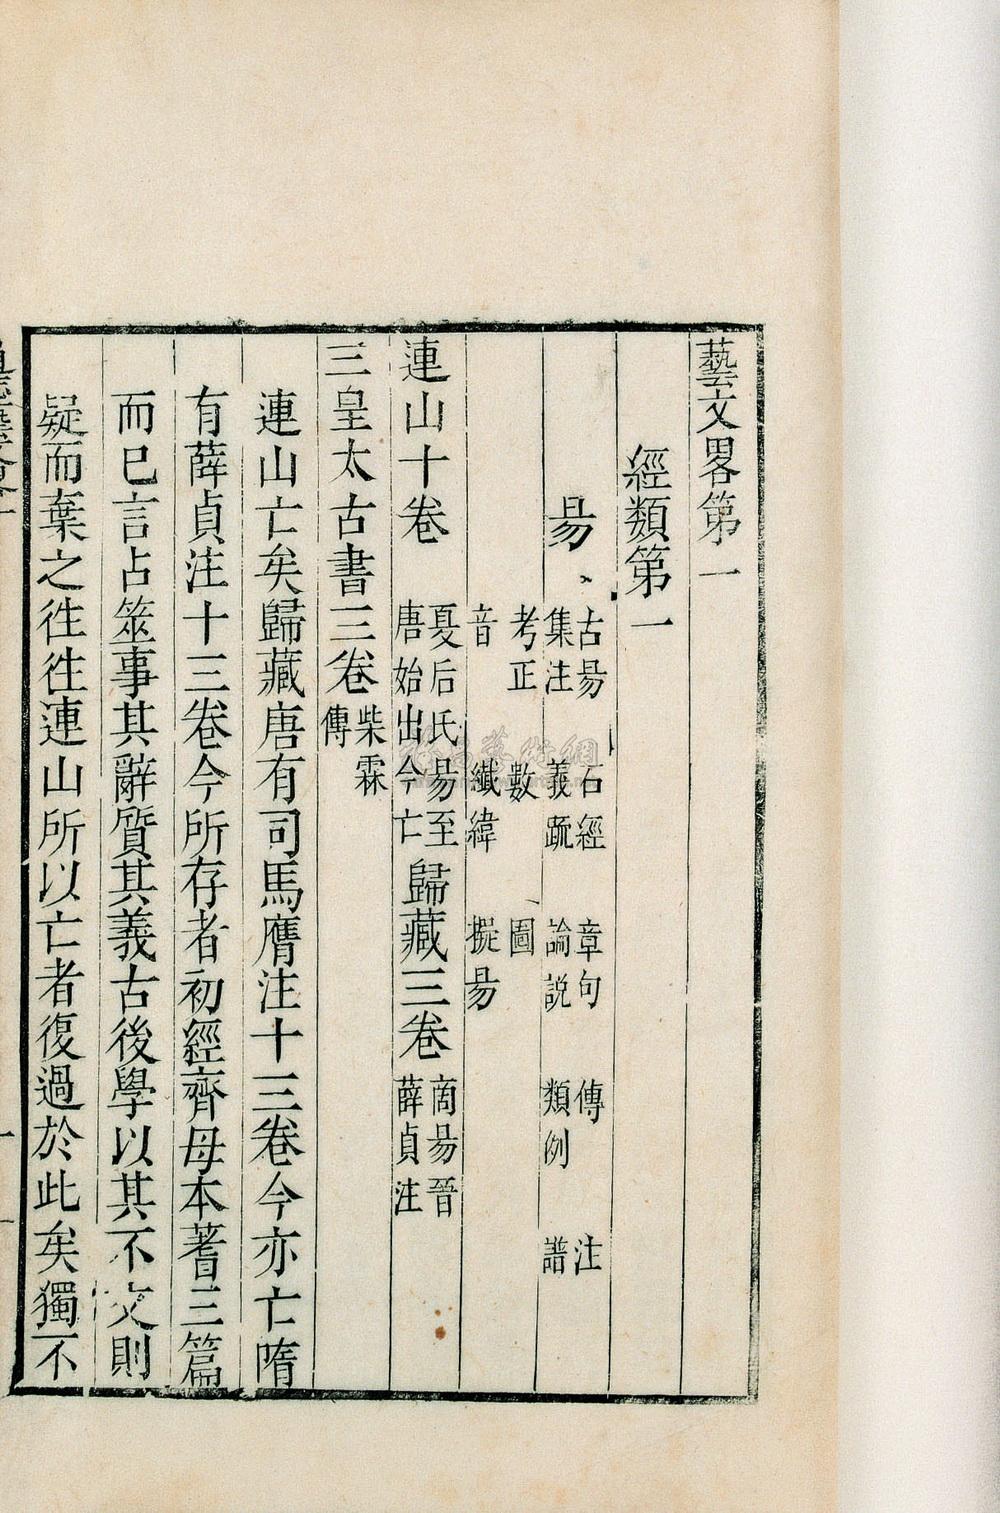 藝文畧第一
經類第一
易
古易 石經 章句 傳 注
集注 義疏 論説 類例 譜
考正 數 圖
音 纖緯 擬易
連山十卷 夏后氏易至唐始出今亡 歸藏三卷 商易晉薛貞注
三皇太古書三卷 柴霖傳
連山亡矣歸藏唐有司馬膺注十三卷今亦亡隋
有薛貞注十三卷今所存者初經齊母本蓍三篇
而已言占筮事其辭質其義古後學以其不文則
疑而棄之徃徃連山所以亡者復過於此矣獨不